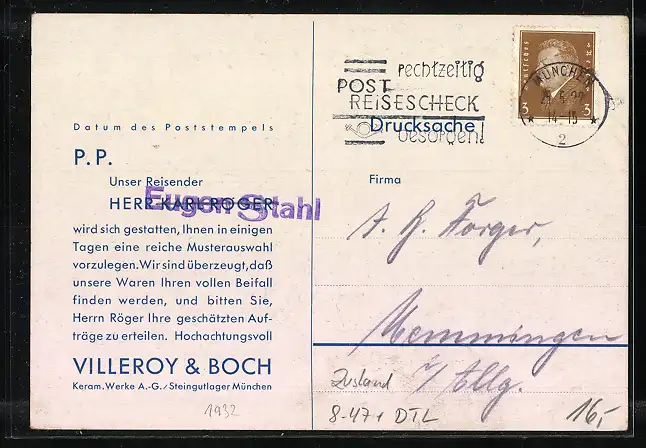 Datum des Poststempels
P.P.
Unser Reisender
HERR KARL RÖGER
Eugen Stahl
wird sich gestatten, Ihnen in einigen
Tagen eine reiche Musterauswahl
vorzulegen. Wir sind überzeugt, daß
unsere Waren Ihren vollen Beifall
finden werden, und bitten Sie,
Herrn Röger Ihre geschätzten Auf-
träge zu erteilen. Hochachtungsvoll
VILLEROY & BOCH
Keram. Werke A.-G. / Steingutlager München
1932
rechtzeitig
POST
REISESCHECK
besorgen!
Drucksache
MÜNCHEN
14-15
2
3 3
Firma
Memmingen
Allg.
Zustand
8-47+ DTL
16,-